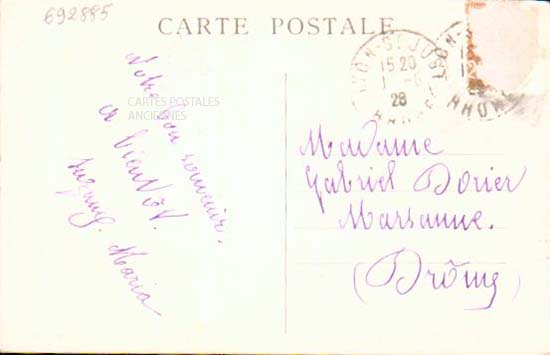 692885
CARTE POSTALE
LYON-ST JUST
15 20
1 -6
28
RHONE
LYON-
RHONE
CARTES POSTALES
ANCIENNES
bon souvenir.
a bientôt.
Maria
Madame
Gabriel Dorier
Marsanne.
(Drôme)